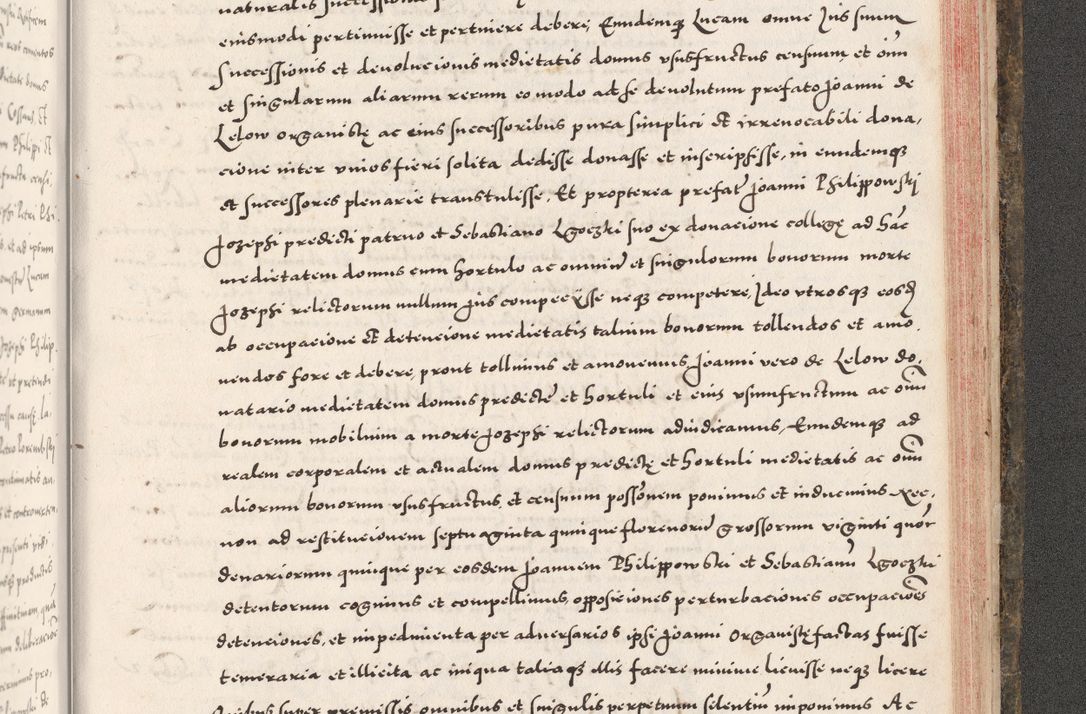 naturalis successio
eiusmodi pertinuisse et pertinere debere, Eundemq Lucam omne Jus suum
successionis et devolucionis medietatis domus ususfructus censuum, et oim
et singularum aliarum rerum eo modo ad se devolutum prefato Joanni de
Lelow organistę ac eius successoribus pura simplici et irrevocabili dona,
cione inter vivos fieri solita dedisse donasse et inscripsisse, in eundemq
et successores plenarie transtulisse. Et propterea prefat Joanni Philippowski
Jozephi predicti patruo et Sebastiano Lgoczki suo ex donacione collegę ad hac
medietatem domus cum hortulo ac omniu et singulorum bonorum morte
Jozephi relictorum nullum Jus compecisse neq competere, Ideo utrosq eosd
ab occupacione et detencione medietatis talium bonorum tollendos et amo,
vendos fore et debere, prout tollimus et amovemus, Joanni vero de Lelow do,
natario medietatem domus predicte et hortuli et eius usumfructum ac oim
bonorum mobilium a morte Jozephi relictorum adiudicamus, Eundemq ad
realem corporalem et actualem domus predictę et hortuli medietatis ac oim
aliorum bonorum ususfructus, et censuum possonem ponimus et inducimus Nec,
non ad restitucionem septuaginta quinque florenoru grossorum viginti quor
denariorum quinque per eosdem Joannem Philippowski et Sebastianu Lgoczki
detentorum cogimus et compellimus, opposiciones perturbaciones occupacioes
detenciones, et impedimenta per adversarios ipsi Joanni Organistę factas fuisse
temeraria et illicita ac iniqua taliaq illis facere minime licuisse neq licere
super premissis omnibus et singulis perpetuum silentiu imponimus Ac